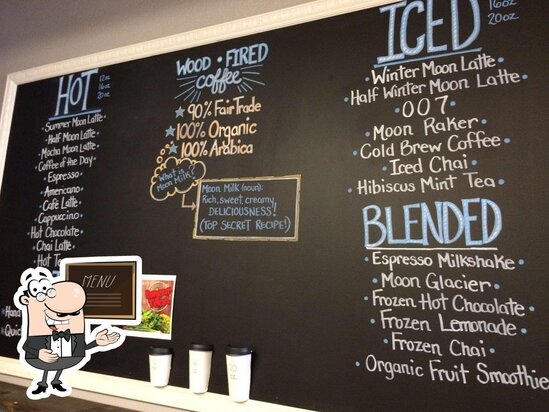 HOT
12oz
16oz
20oz
Summer Moon Latte
Half Moon Latte
Mocha Moon Latte
Coffee of the Day
Espresso
Americano
Café Latte
Cappuccino
Hot Chocolate
Chai Latte
WOOD • FIRED
coffee
90% Fair Trade
100% Organic
100% Arabica
What is
Moon Milk?
Moon Milk (noun):
Rich, sweet, creamy
DELICIOUSNESS!
(TOP SECRET RECIPE!)
MENU
ICED
16oz
20oz
Winter Moon Latte
Half Winter Moon Latte
007
Moon Raker
Cold Brew Coffee
Iced Chai
Hibiscus Mint Tea
BLENDED
Espresso Milkshake
Moon Glacier
Frozen Hot Chocolate
Frozen Lemonade
Frozen Chai
Organic Fruit Smoothie